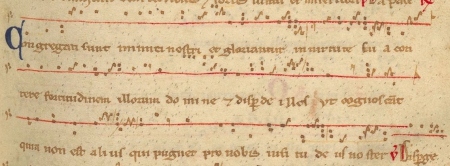 Congregati sunt inimici nostri et gloriantur in virtute su a con
tere fortitudinem illorum do mi ne & disperde illos ut cognoscant
quia non est ali us qui pugnet pro nobis nisi tu de us noster ℣ Disperge